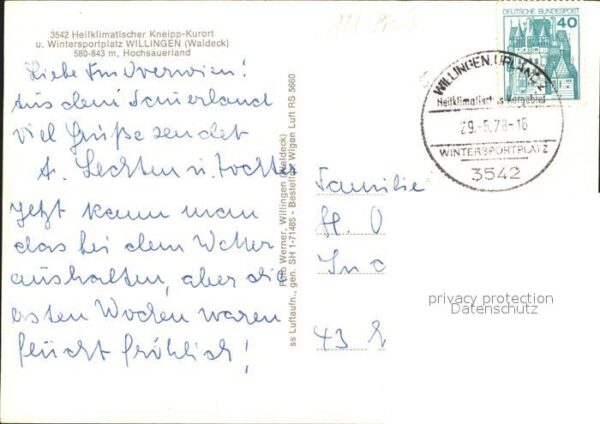 3542 Heilklimatischer Kneipp-Kurort
u. Wintersportplatz WILLINGEN (Waldeck)
580-843 m, Hochsauerland
Liebe
Aus dem Sauerland
viel Grüße sendet
A. Lechten u. Tochter
Jetzt kann man
das bei dem Wetter
aushalten, aber die
ersten Wochen waren
feucht fröhlich!
Foto Werner, Willingen (Waldeck)
ss Luftaufn., gen. SH 1-71485 - Bestell-Nr. Wigen Luft RS 5660
DEUTSCHE BUNDESPOST
40
WILLINGEN, UPLAND
Heilklimatisches Kurgebiet
29.-5.78-16
WINTERSPORTPLATZ
3542
Familie
H. O
In
43
privacy protection
Datenschutz